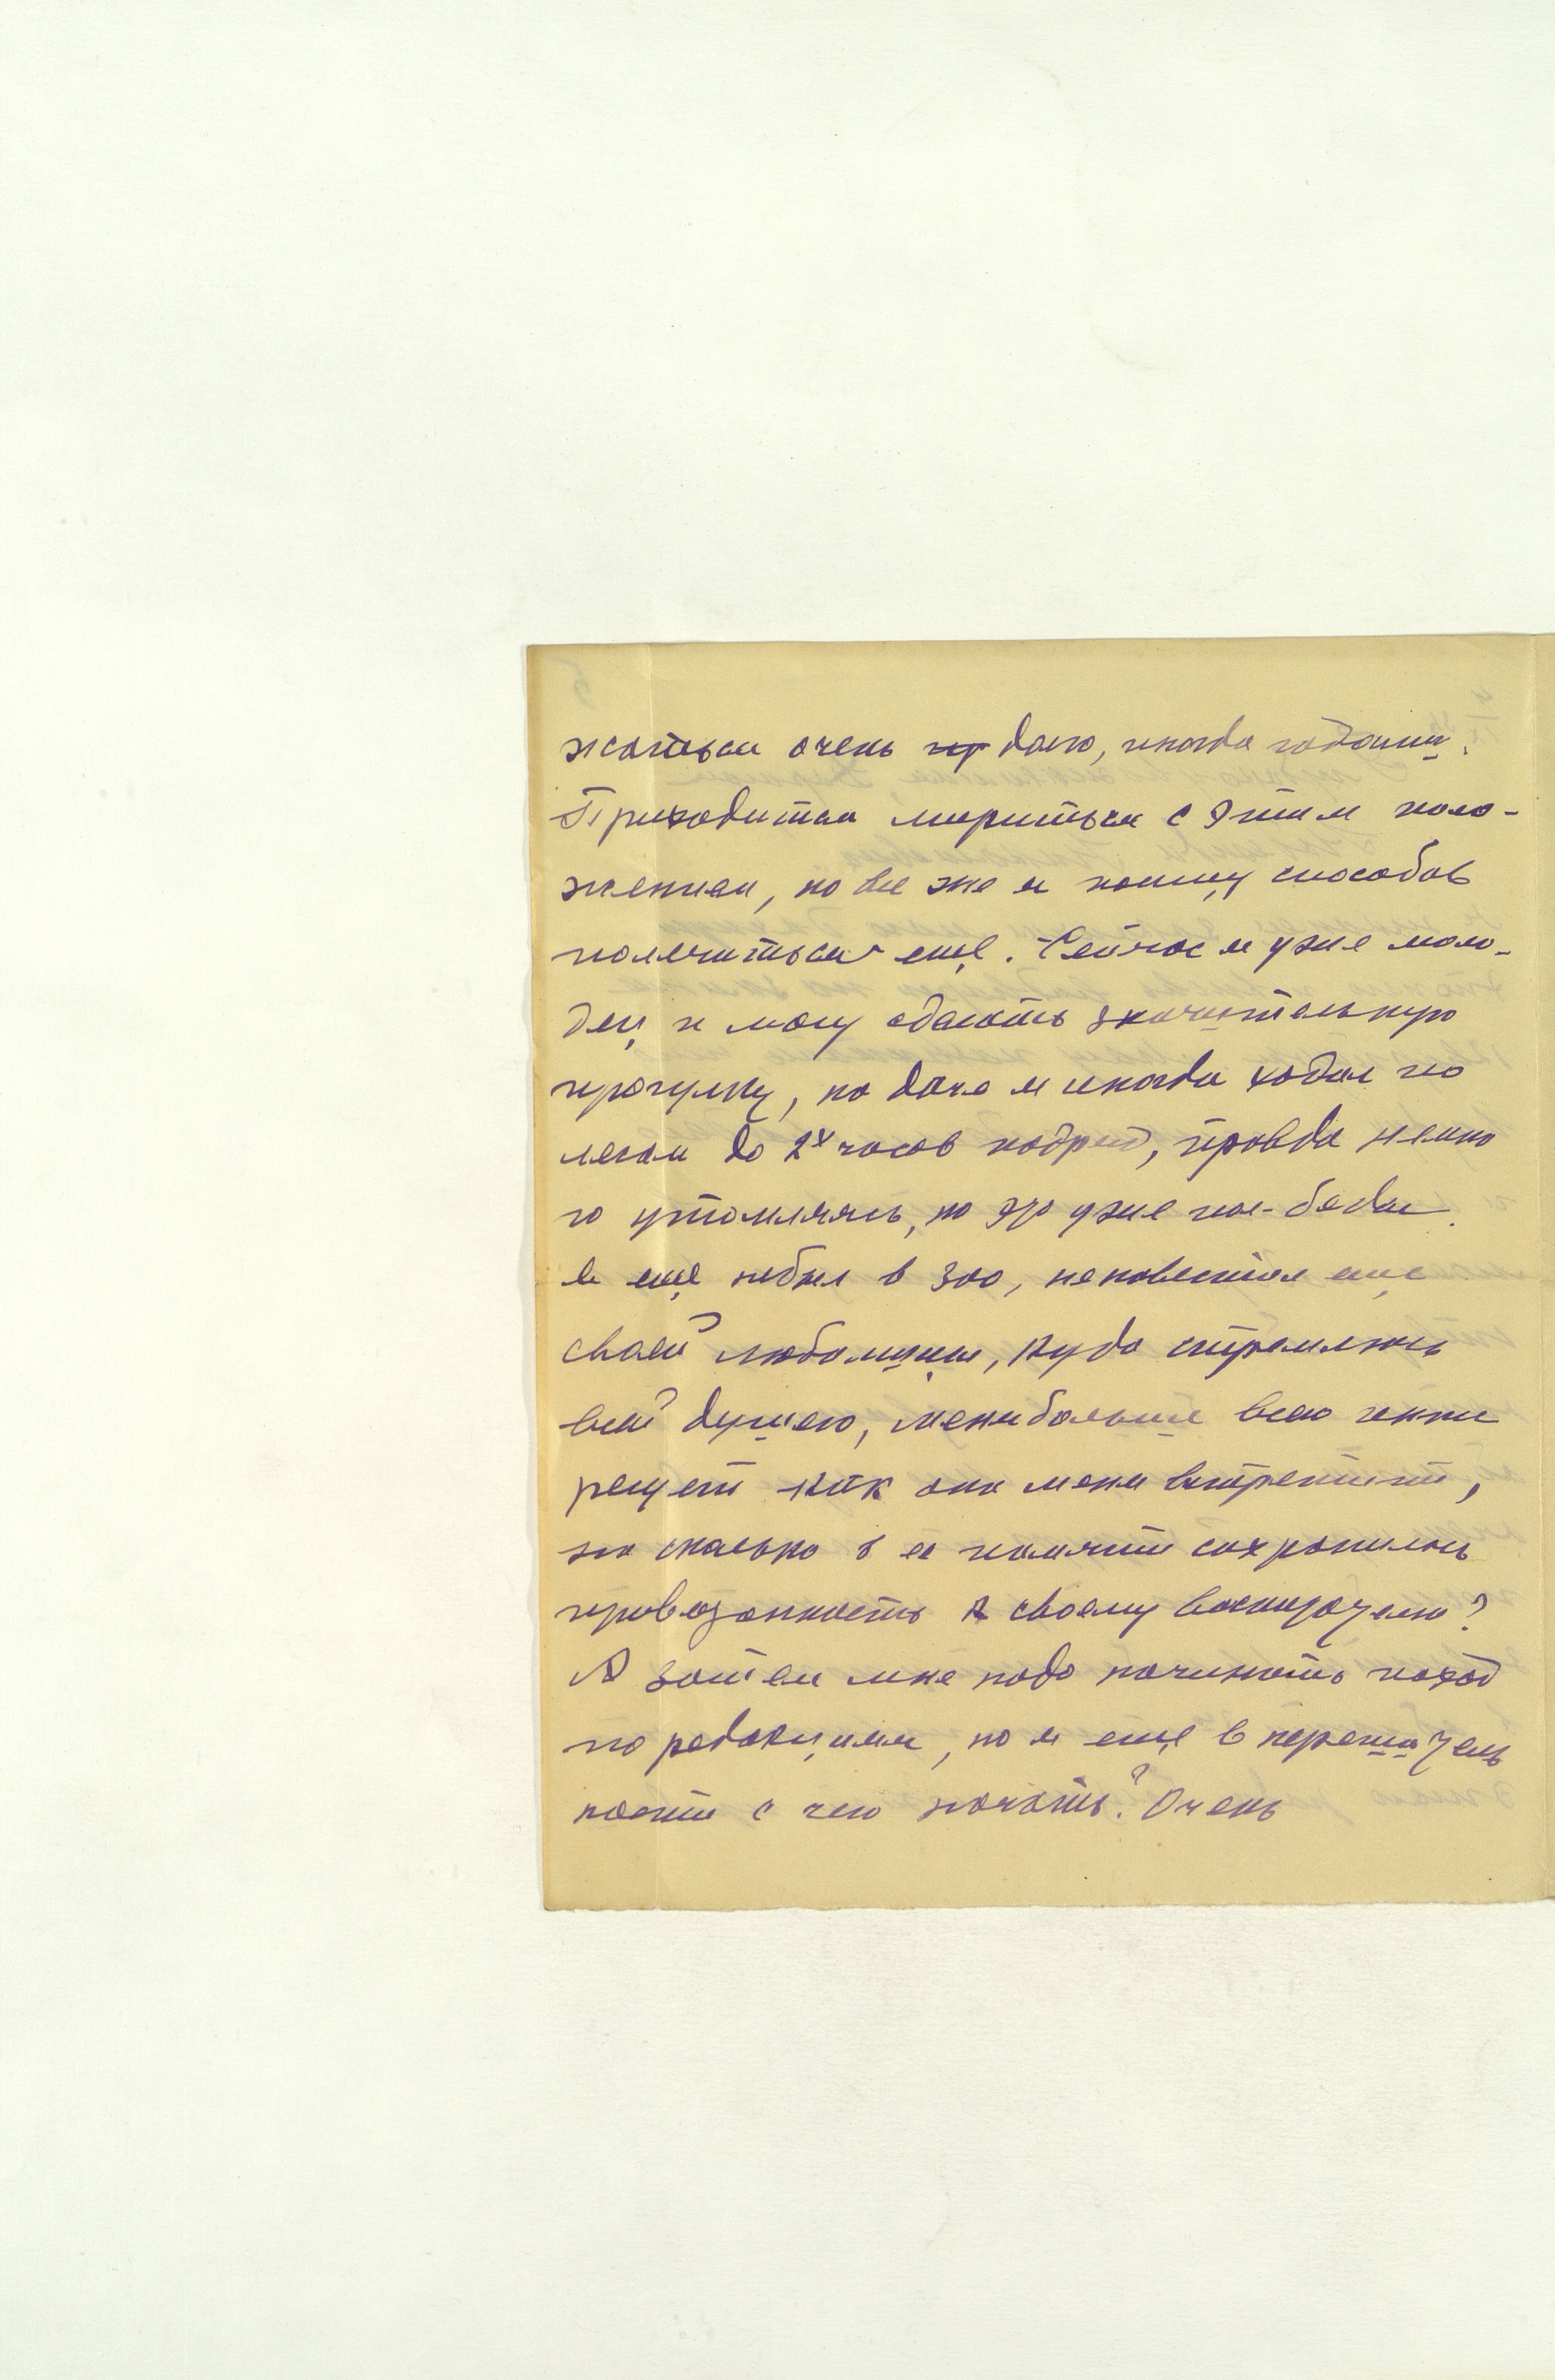 жаться очень пр долго, иногда годами.
Приходится мириться с этим поло-
жением, но все же я поищу способов
полечиться еще. Сейчас я уже моло-
дец и могу сделать значительную
прогулку, на даче я иногда ходил по
лесам до 2х часов подряд, правда немно
го утомляясь, но это уже пол-беды.
Я еще небыл в Зоо, ненавестил еще
своей любимицы, куда стремлюсь
всей душею, меня больше всего инте
ресует как она меня встретит,
на сколько в ее памяти сохранилась
привязанность к своему воспитателю?
А затем мне надо начинать поход
по редакциям, но я еще в нерешитель
ности с чего начать? Очень